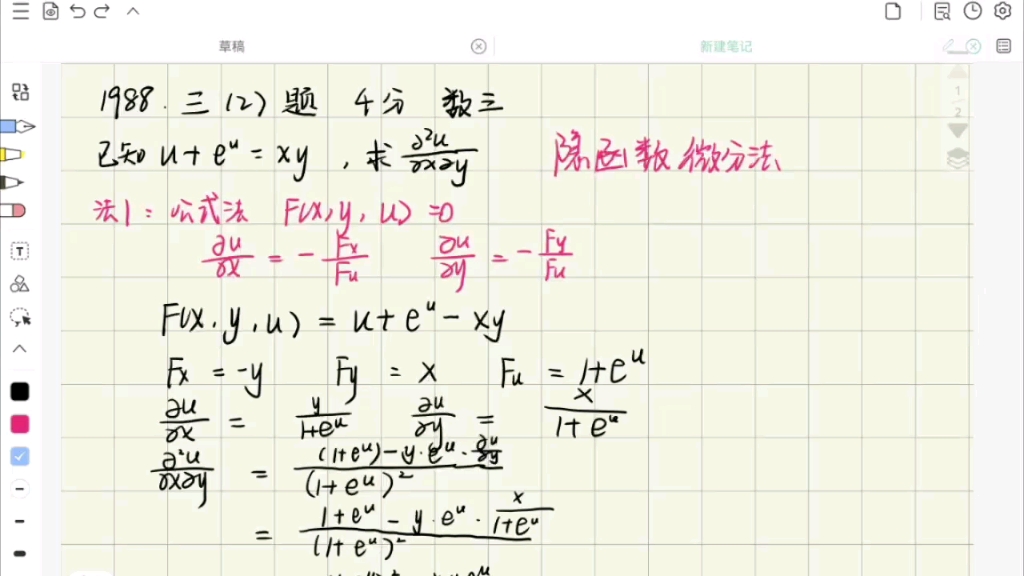 草稿
新建笔记
1
2
T
1988. 三(2)题 4分 数三
已知 u + e^u = xy , 求 ∂²u/∂x∂y 隐函数微分法
法1: 公式法 F(x, y, u) = 0
∂u/∂x = - Fx/Fu ∂u/∂y = - Fy/Fu
F(x, y, u) = u + e^u - xy
Fx = -y Fy = x Fu = 1+e^u
∂u/∂x = y/(1+e^u) ∂u/∂y = x/(1+e^u)
∂²u/∂x∂y = ((1+e^u) - y·e^u·∂u/∂y)/(1+e^u)²
= (1+e^u - y·e^u·x/(1+e^u))/(1+e^u)²